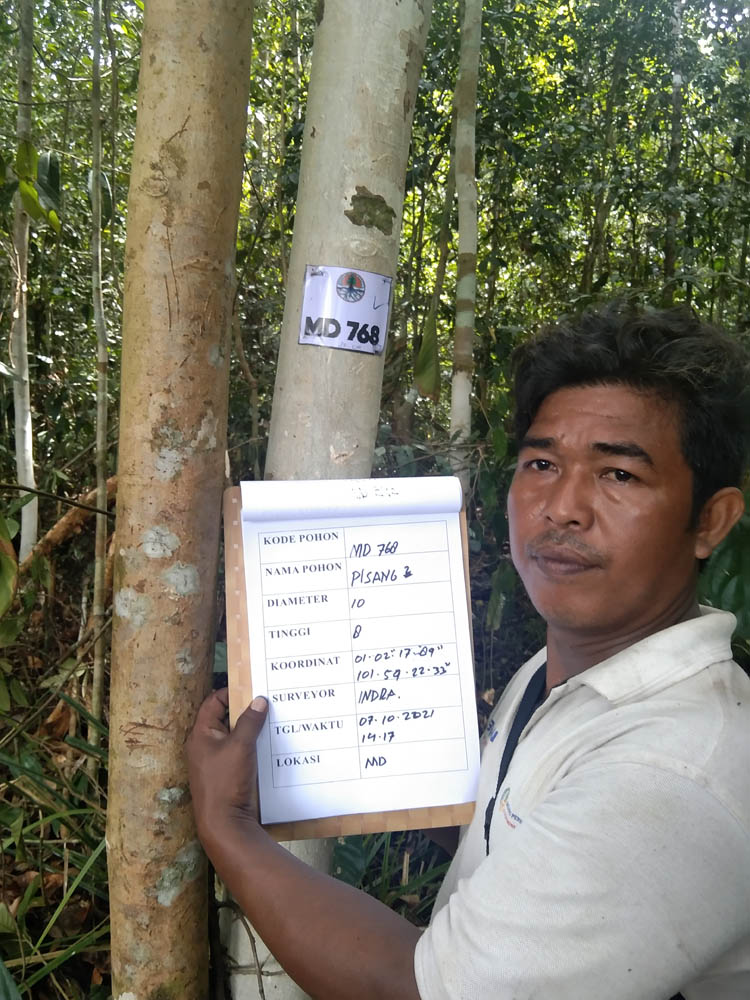 MD 768
KODE POHON MD 768
NAMA POHON PISANG2
DIAMETER 10
TINGGI 8
KOORDINAT 01.02.17.89"
101.59.22.33"
SURVEYOR INDRA.
TGL/WAKTU 07.10.2021
14.17
LOKASI MD